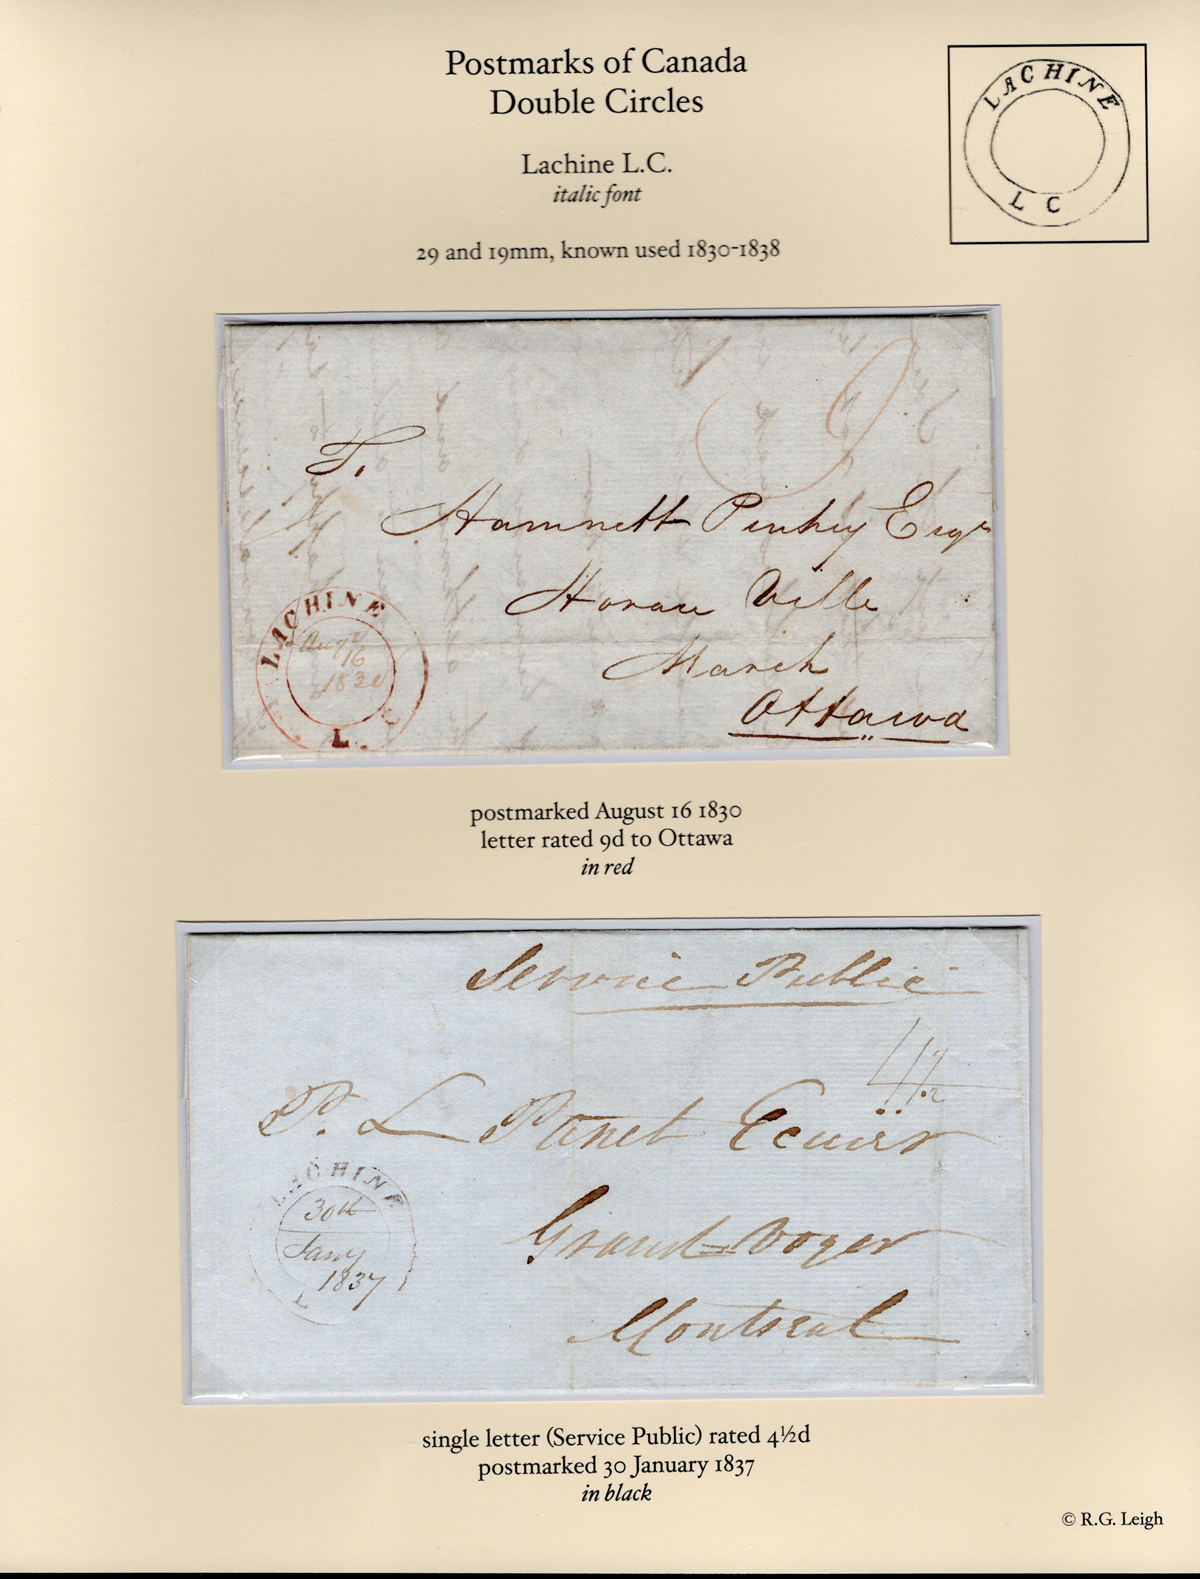 Postmarks of Canada
Double Circles
Lachine L.C.
italic font
29 and 19mm, known used 1830-1838
LACHINE
L C
To.
Hamnett Pinhey Esqr
Horace Ville
March
Ottawa
LACHINE
Augt
16
1830
L. C
postmarked August 16 1830
letter rated 9d to Ottawa
in red
Service Public
4 1/2
P. L Panet Ecuier
Grand=Voyer
Montreal
LACHINE
30th
Jany
1837
L
single letter (Service Public) rated 4½d
postmarked 30 January 1837
in black
© R.G. Leigh